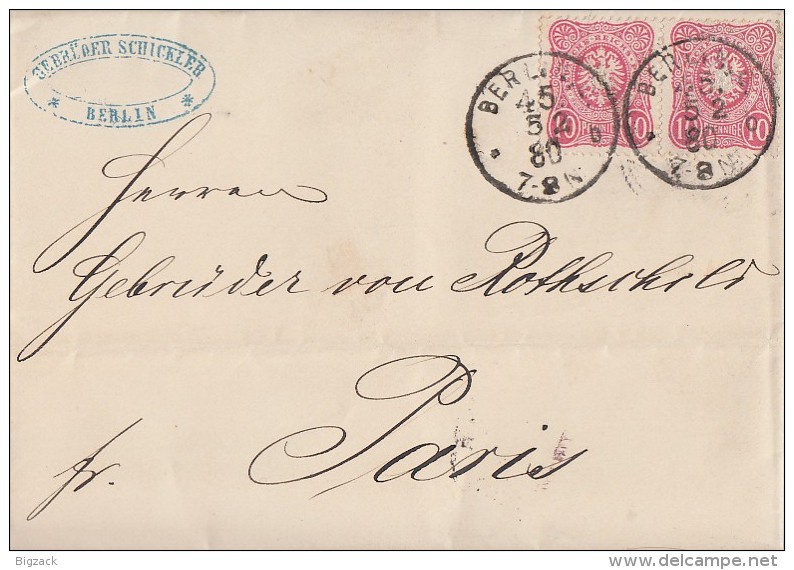 GEBRÜDER SCHICKLER
* BERLIN *
BERLIN
45
5 2
80
7-8 N
BERLIN
45
5 2
80
7-8 N
10 PFENNIGE 10
Herren
Gebrüder von Rothschild
Paris
fr.
Bigzack
delcampe.net